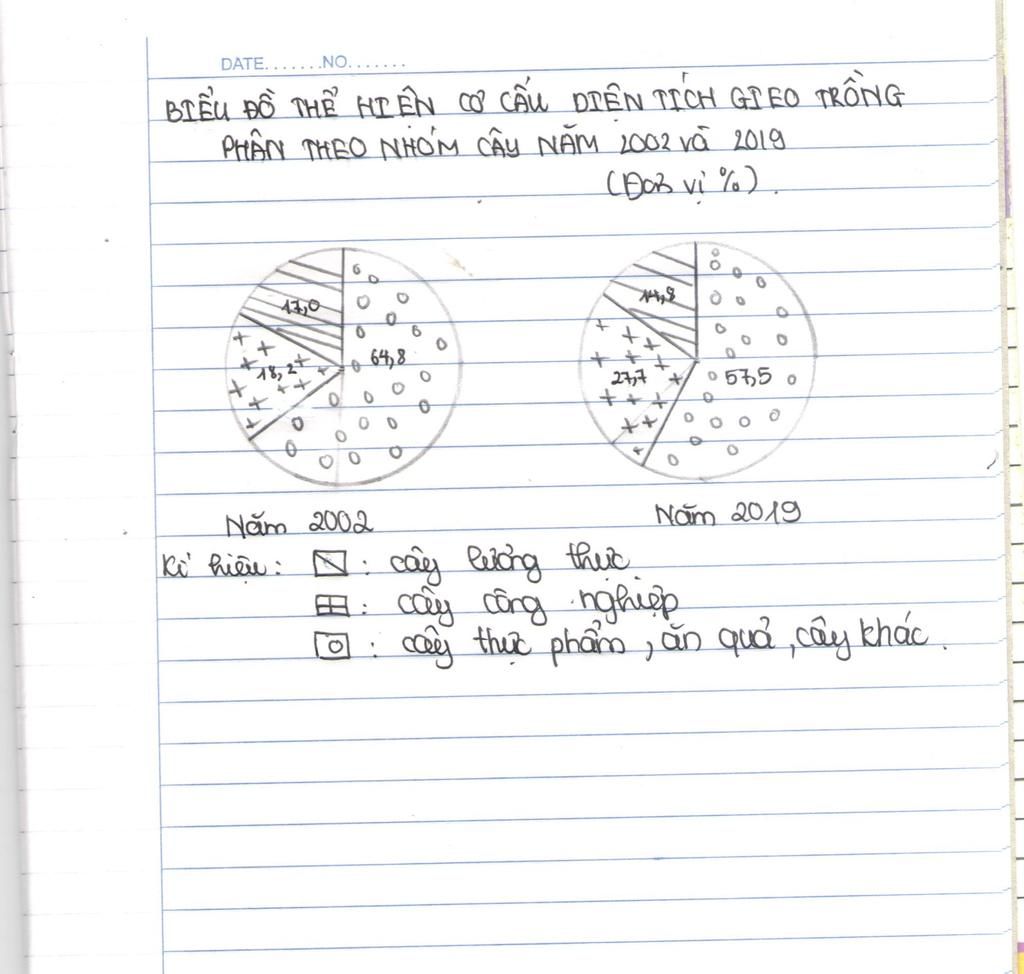 DATE.......NO.......
BIỂU ĐỒ THỂ HIỆN CƠ CẤU DIỆN TÍCH GIEO TRỒNG
PHÂN THEO NHÓM CÂY NĂM 2002 và 2019
(Đơn vị %).
17,0
64,8
18,2
14,8
27,7
57,5
Năm 2002
Năm 2019
Kí hiệu: : cây lương thực
: cây công nghiệp
: cây thực phẩm, ăn quả, cây khác.